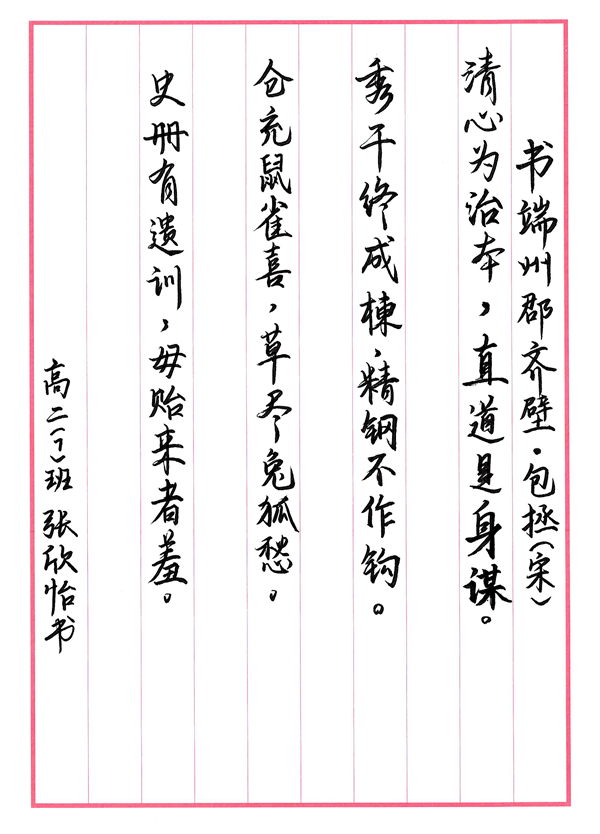 书端州郡齐壁·包拯(宋)
清心为治本,直道是身谋。
秀干终成栋,精钢不作钩。
仓充鼠雀喜,草尽兔狐愁。
史册有遗训,毋贻来者羞。
高二(7)班 张欣怡书